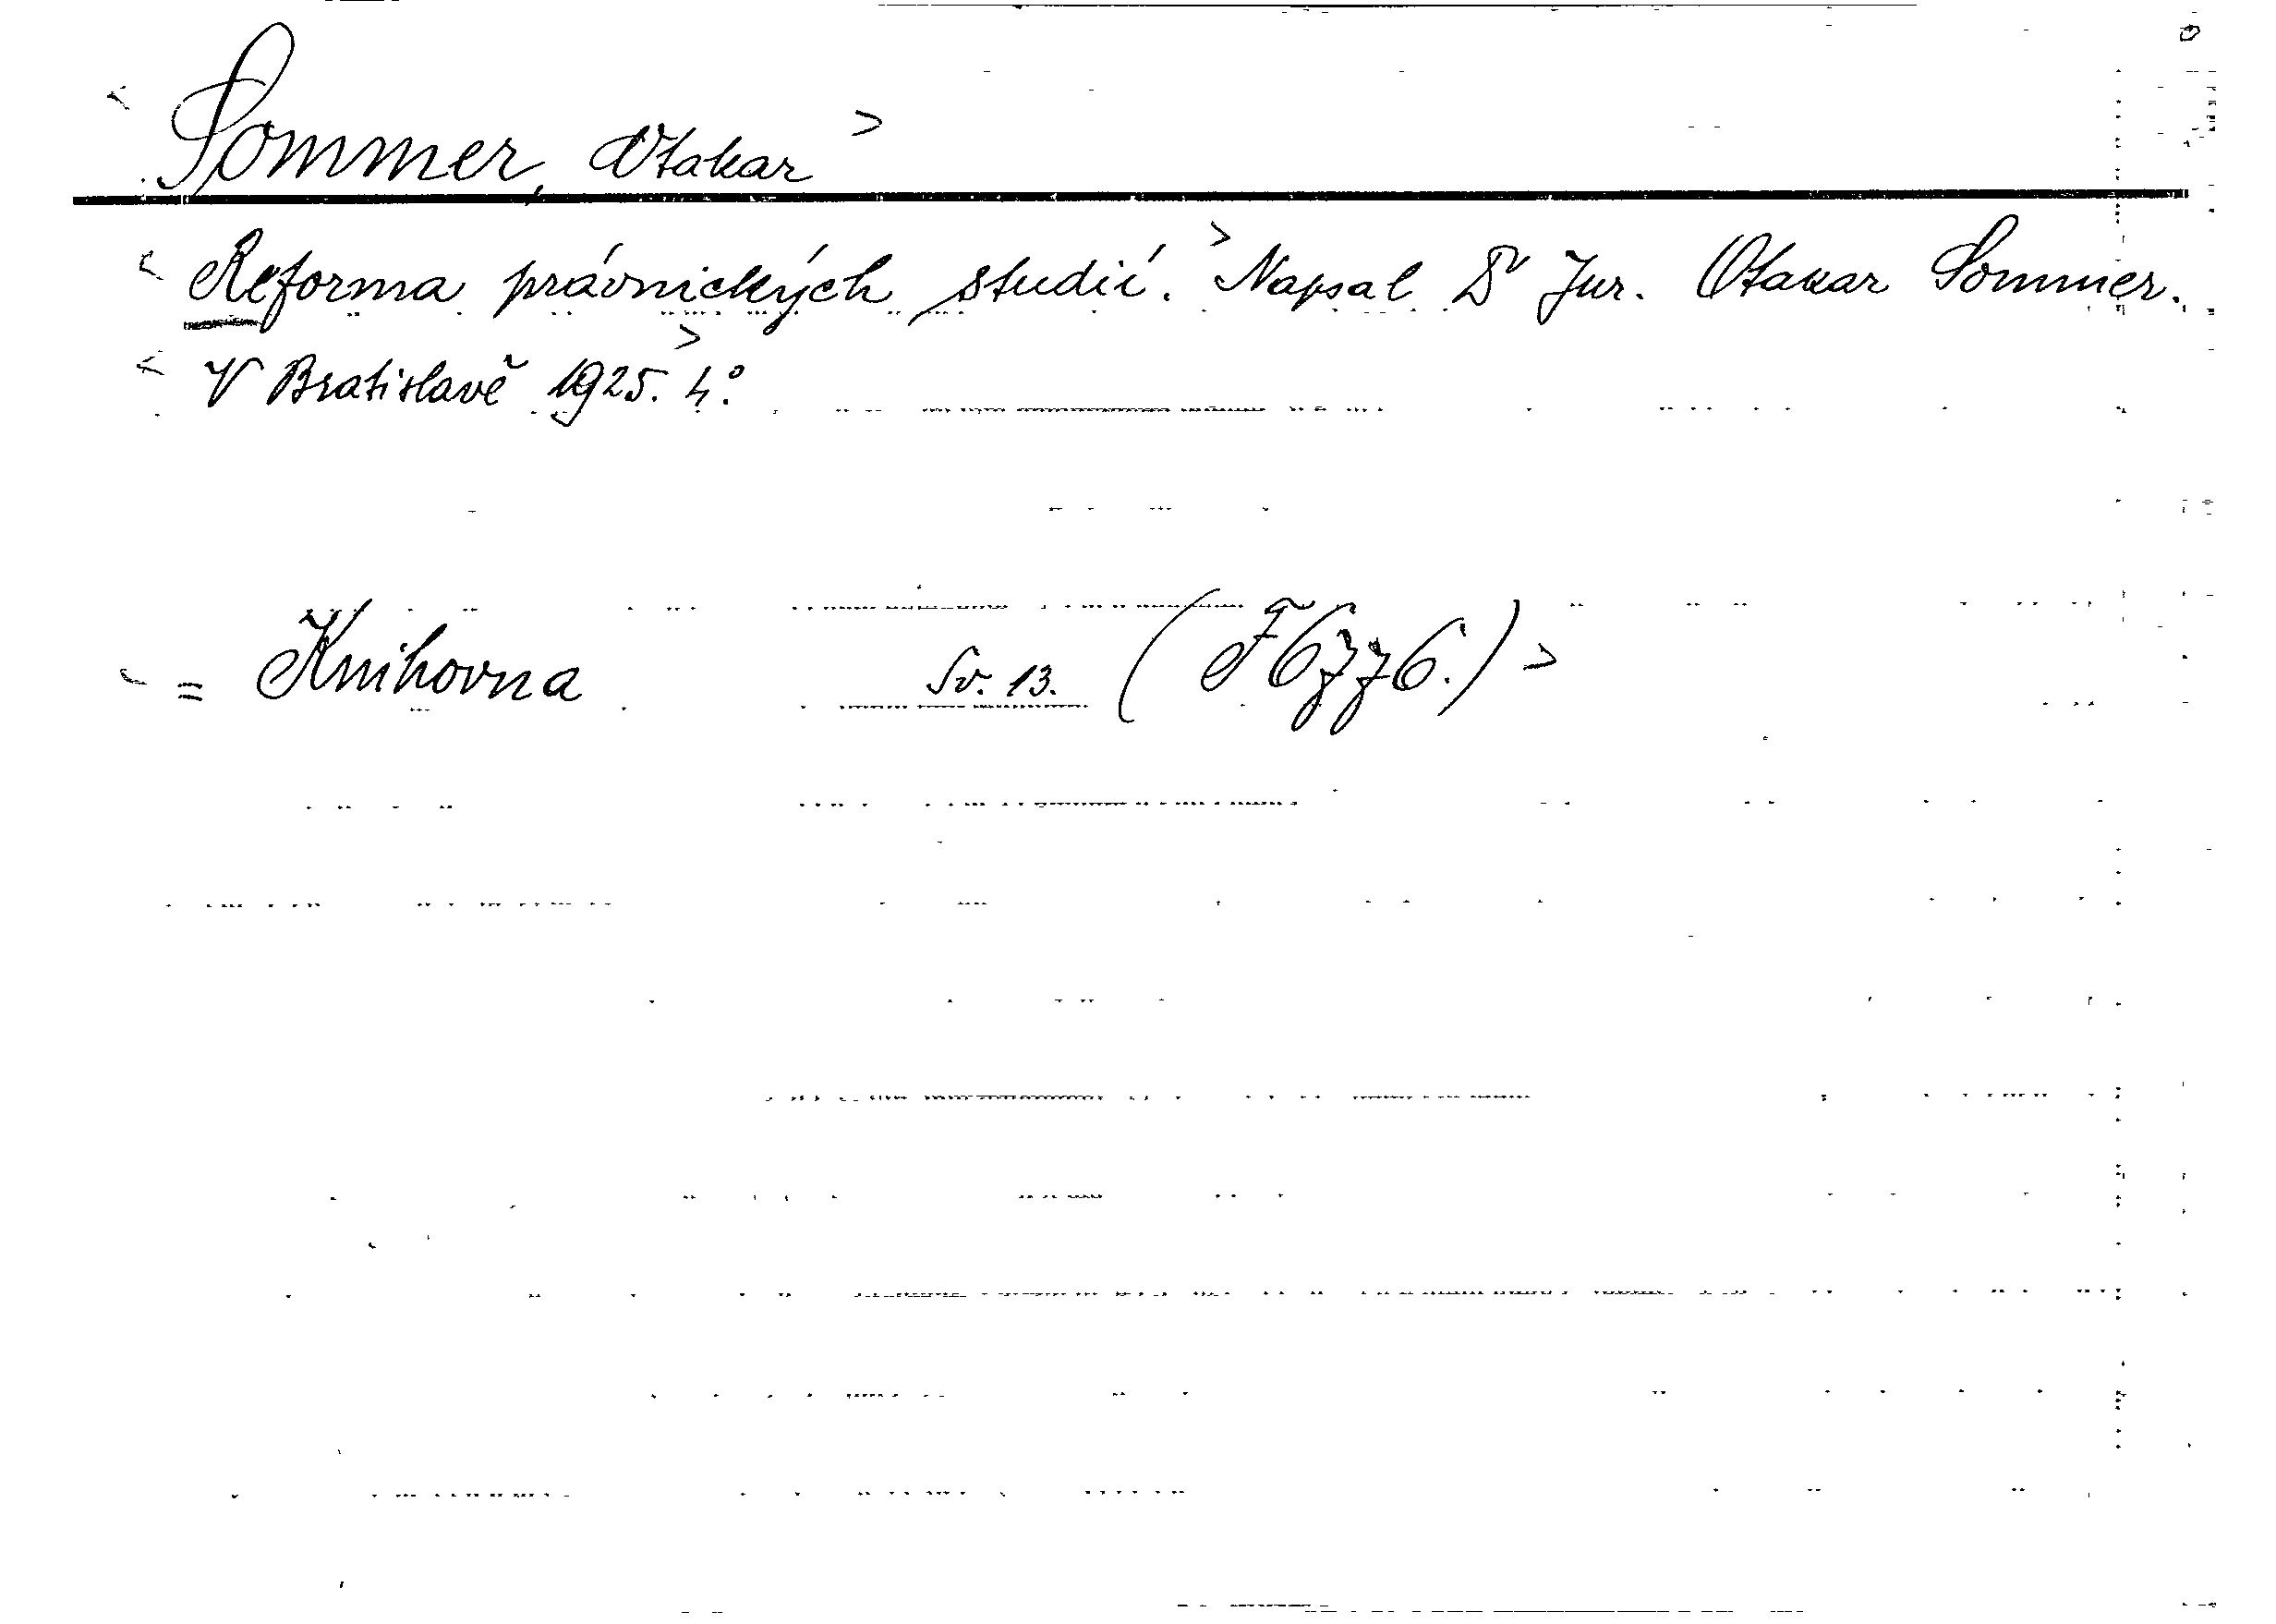 Sommer, Otakar
Reforma právnických studií. Napsal Dr Jur. Otakar Sommer.
V Bratislavě 1925. 4°.
= Knihovna Sv. 13. (F6776.)